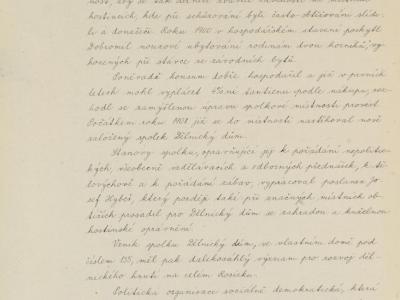 nost, aby se tak
hostincích, kde při schůzování byli často obtěžováni slídi-
li a donašeči. Roku 1900 v hospodářském stavení poskytl
Dobromil nouzové ubytování rodinám dvou horníků, vy-
hozených při stávce ze závodních bytů.
Poněvadž konsum dobře hospodařil a již v prvních
letech mohl vyplácet tantiemu podle nákupu, roz-
hodl se zamýšlenou úpravu spolkové místnosti provést.
Počátkem roku 1908 již se do místnosti nastěhoval nově
založený spolek Dělnický dům.
Stanovy spolku, opravňující jej k pořádání nepolitic-
kých, všeobecně vzdělávacích a odborných přednášek, k tě-
lovýchově a k pořádání zábav, vypracoval poslanec Jo-
sef Hybeš, který později také při značných místních ob-
tížích prosadil pro Dělnický dům se zahradou a kuželnou
hostinské oprávnění.
Vznik spolku Dělnický dům, ve vlastním domě pod
číslem 155, měl pak dalekosáhlý význam pro rozvoj děl-
nického hnutí na celém Rosicku.
Politická organisace sociálně demokratická, která